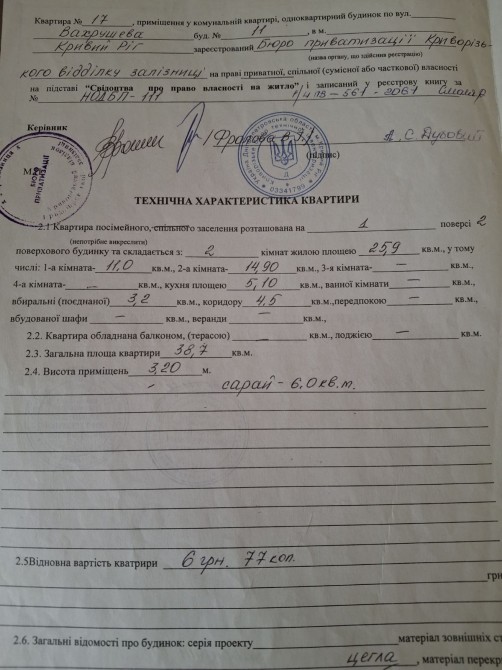 Квартира № 17, приміщення у комунальній квартирі, одноквартирний будинок по вул.
Вахрушева буд. № 11, в м.
Кривий Ріг зареєстрований Бюро приватизації Криворізь-
(назва органу, що здійснив реєстрацію)
кого відділку залізниці на праві приватної, спільної (сумісної або часткової) власності
на підставі "Свідоцтва про право власності на житло" і записаний у реєстрову книгу за
№ 
Керівник
(підпис)
М.П.
БЮРО ПРИВАТИЗАЦІЇ
03341789
ТЕХНІЧНА ХАРАКТЕРИСТИКА КВАРТИРИ
2.1 Квартира посімейного, спільного заселення розташована на 1 поверсі 2
(непотрібне викреслити)
поверхового будинку та складається з: 2 кімнат жилою площею 25,9 кв.м., у тому
числі: 1-а кімната- 11,0 кв.м., 2-а кімната- 14,90 кв.м., 3-я кімната- — кв.м.,
4-а кімната- — кв.м., кухня площею 5,10 кв.м., ванної кімнати — кв.м.,
вбиральні (поєднаної) 3,2 кв.м., коридору 4,5 кв.м.,передпокою — кв.м.,
вбудованої шафи — кв.м., веранди — кв.м.,
2.2. Квартира обладнана балконом, (терасою) — кв.м., лоджією — кв.м.
2.3. Загальна площа квартири 38,7 кв.м.
2.4. Висота приміщень 3,20 м.
сарай - 6,0 кв.м.
2.5Відновна вартість кватрири 6 грн. 77 коп.
гри
2.6. Загальні відомості про будинок: серія проекту матеріал зовнішніх ст
цегла, матеріал перекр